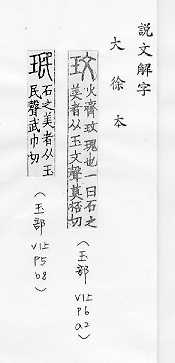 説文解字
大徐本
玟 火齊玟瑰也一曰石之
美者从玉文聲莫桮切
（玉部
V1上
P6
a2）
珉 石之美者从玉
民聲武巾切
（玉部
V1上
P5
b8）